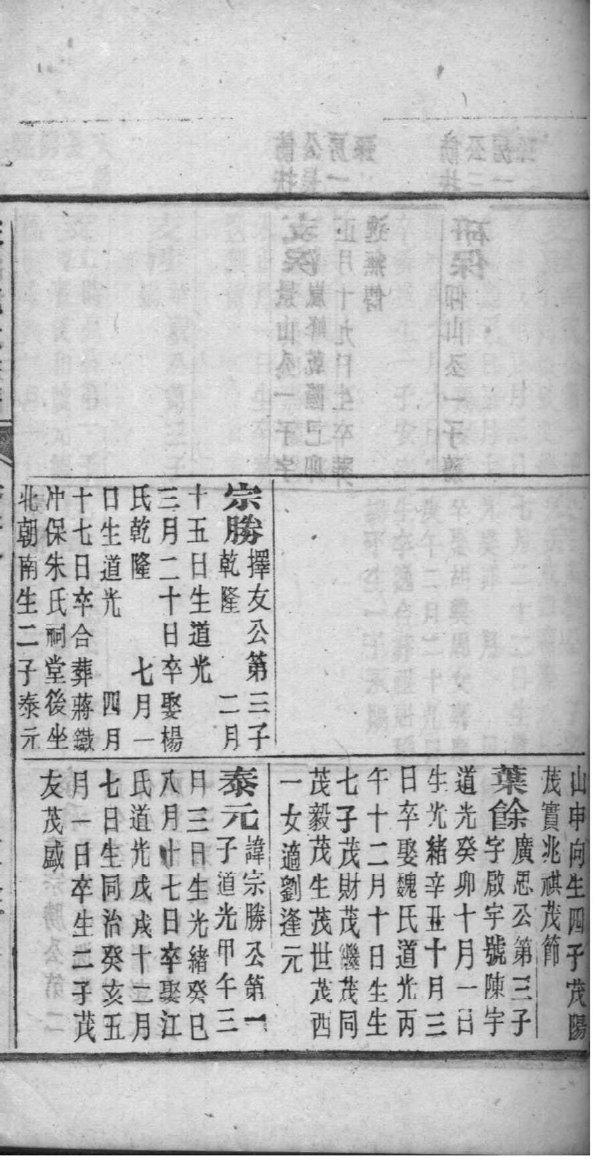 宗勝擇友公第三子
乾隆 二月
十五日生道光
三月二十日卒娶楊
氏乾隆 七月一
日生道光 四月
十七日卒合葬蔣鐵
冲保朱氏祠堂後坐
北朝南生二子泰元
山申向生四子茂陽
茂實兆祺茂節
葉餘廣思公第三子
字啟宇號陳宇
道光癸卯十月一日
生光緒辛丑十月三
日卒娶魏氏道光丙
午十二月十日生生
七子茂財茂 茂同
茂毅茂生茂世茂西
一女適劉逢元
泰元諱宗勝公第一
子道光甲午三
月三日生光緒癸巳
八月十七日卒娶江
氏道光戊戌十二月
七日生同治癸亥五
月一日卒生二子茂
友茂盛